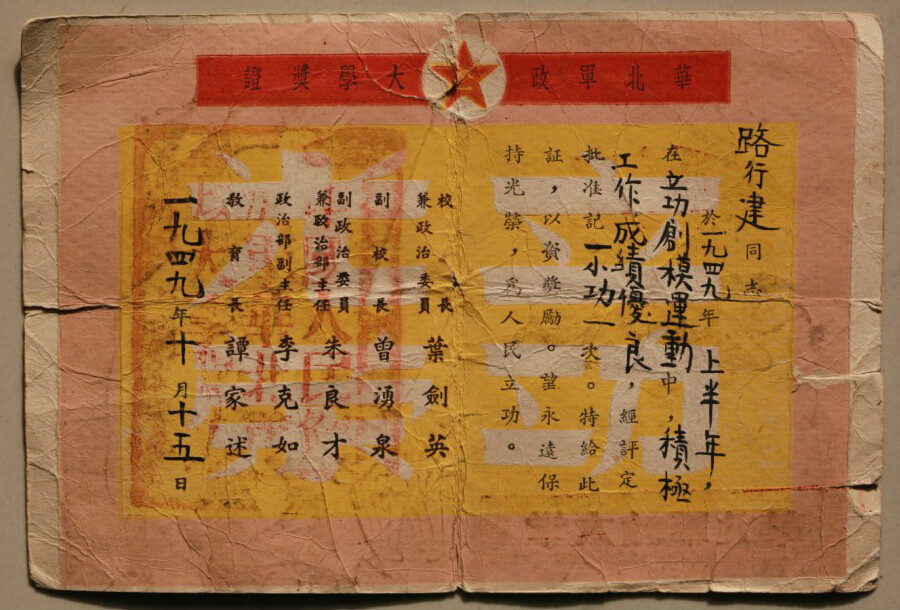 華北軍政大學獎證
路行建同志
於一九四九年上半年，
在立功創模運動中，積極
工作成績優良，經評定
批准記一小功一次。特給此
証，以資獎勵。望永遠保
持光榮，爲人民立功。
校長
兼政治委員 葉劍英
副校長 曾湧泉
副政治委員
兼政治部主任 朱良才
政治部副主任 李克如
教育長 譚家述
一九四九年十月十五日
立功